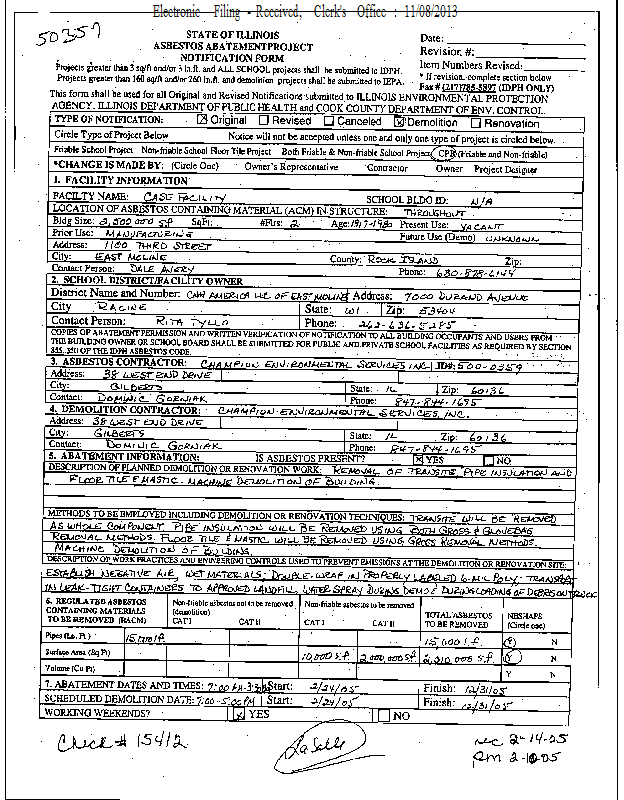 Electronic Filing - Received, Clerk's Office : 11/08/2013
50357
STATE OF ILLINOIS
ASBESTOS ABATEMENT PROJECT
NOTIFICATION FORM
Date:
Revision #:
Item Numbers Revised:
Projects greater than 3 sq/ft and/or 3 ln.ft. and ALL SCHOOL projects shall be submitted to IDPH.
* If revision, complete section below
Projects greater than 160 sq/ft and/or 260 ln.ft. and demolition projects shall be submitted to IEPA.
Fax # (217)785-5897 (IDPH ONLY)
This form shall be used for all Original and Revised Notifications submitted to ILLINOIS ENVIRONMENTAL PROTECTION
AGENCY, ILLINOIS DEPARTMENT OF PUBLIC HEALTH and COOK COUNTY DEPARTMENT OF ENV. CONTROL.
TYPE OF NOTIFICATION: Original Revised Canceled Demolition Renovation
Circle Type of Project Below Notice will not be accepted unless one and only one type of project is circled below.
Friable School Project Non-friable School Floor Tile Project Both Friable & Non-friable School Project (Friable and Non-friable)
*CHANGE IS MADE BY: (Circle One) Owner's Representative Contractor Owner Project Designer
1. FACILITY INFORMATION
FACILTY NAME: CASE FACILITY SCHOOL BLDG ID: N/A
LOCATION OF ASBESTOS CONTAINING MATERIAL (ACM) IN STRUCTURE: THROUGHOUT
Bldg Size: 2,500,000 S.F. Sq.Ft. #Flrs: 2 Age: 1917-1980 Present Use: VACANT
Prior Use: MANUFACTURING Future Use (Demo) UNKNOWN
Address: 1100 THIRD STREET
City: EAST MOLINE County: ROCK ISLAND Zip:
Contact Person: DALE AVERY Phone: 630-878-6149
2. SCHOOL DISTRICT/FACILITY OWNER
District Name and Number: CNH AMERICA LLC OF EAST MOLINE Address: 7000 DURAND AVENUE
City RACINE State: WI Zip: 53404
Contact Person: RITA TYLLO Phone: 262-636-5285
COPIES OF ABATEMENT PERMISSION AND WRITTEN VERIFICATION OF NOTIFICATION TO ALL BUILDING OCCUPANTS AND USERS FROM
THE BUILDING OWNER OR SCHOOL BOARD SHALL BE SUBMITTED FOR PUBLIC AND PRIVATE SCHOOL FACILITIES AS REQUIRED BY SECTION
855.350 OF THE IDPH ASBESTOS CODE.
3. ASBESTOS CONTRACTOR: CHAMPION ENVIRONMENTAL SERVICES INC ID#: 500-0359
Address: 38 WEST END DRIVE
City: GILBERTS State: IL Zip: 60136
Contact: DOMINIC GORNIAK Phone: 847-844-1695
4. DEMOLITION CONTRACTOR: CHAMPION ENVIRONMENTAL SERVICES, INC.
Address: 38 WEST END DRIVE
City: GILBERTS State: IL Zip: 60136
Contact: DOMINIC GORNIAK Phone: 847-844-1695
5. ABATEMENT INFORMATION: IS ASBESTOS PRESENT? YES NO
DESCRIPTION OF PLANNED DEMOLITION OR RENOVATION WORK: REMOVAL OF TRANSITE, PIPE INSULATION AND
FLOOR TILE & MASTIC. MACHINE DEMOLITION OF BUILDING.
METHODS TO BE EMPLOYED INCLUDING DEMOLITION OR RENOVATION TECHNIQUES: TRANSITE WILL BE REMOVED
AS WHOLE COMPONENT. PIPE INSULATION WILL BE REMOVED USING BOTH GROSS & GLOVEBAG
REMOVAL METHODS. FLOOR TILE & MASTIC WILL BE REMOVED USING GROSS REMOVAL METHODS.
MACHINE DEMOLITION OF BUILDING
DESCRIPTION OF WORK PRACTICES AND ENGINEERING CONTROLS USED TO PREVENT EMISSIONS AT THE DEMOLITION OR RENOVATION SITE:
ESTABLISH NEGATIVE AIR, WET MATERIALS, DOUBLE-WRAP IN PROPERLY LABELED 6-MIL POLY. TRANSPORT
IN LEAK-TIGHT CONTAINERS TO APPROVED LANDFILL. WATER SPRAY DURING DEMO & DURING LOADING OF DEBRIS ON TRUCK
6. REGULATED ASBESTOS CONTAINING MATERIALS TO BE REMOVED (RACM) Non-friable asbestos not to be removed (demolition) CAT I CAT II Non-friable asbestos to be removed CAT I CAT II TOTAL ASBESTOS TO BE REMOVED NESHAPS (Circle one)
Pipes (Ln. Ft.) 15,000 l.f. 15,000 l.f. Y N
Surface Area (Sq Ft) 10,000 S.f. 2,000,000 S.f. 2,010,000 S.f. Y N
Volume (Cu Ft) Y N
7. ABATEMENT DATES AND TIMES: Start: 2/24/05 Finish: 12/31/05
SCHEDULED DEMOLITION DATE: 7:00-5:00 PM Start: 2/24/05 Finish: 12/31/05
WORKING WEEKENDS? YES NO
Check # 15412
LaSalle
rec 2-14-05
pm 2-10-05